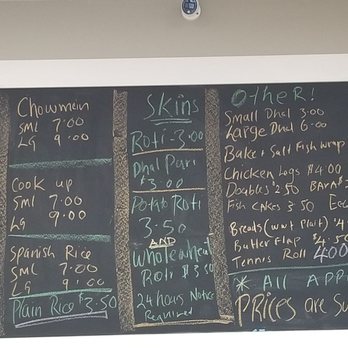 Chowmein
SML 7.00
LG 9.00
Cook up
SML 7.00
LG 9.00
Spanish Rice
SML 7.00
LG 9.00
Plain Rice $3.50
Skins
Roti - 3.00
Dhal Puri
$3.00
Potato Roti
3.50
AND
Wholewheat
Roti $3.50
24 hours Notice
Required
Other!
Small Dhal 3.00
Large Dhal 6.00
Bake + Salt Fish wrap
Chicken Legs $4.00
Doubles 2.50 BARA $
Fish Cakes 3.50
Breads (wwt Plait) $4
Butter Flap $4.50
Tennis Roll 4.00
* All APP
PRices are su